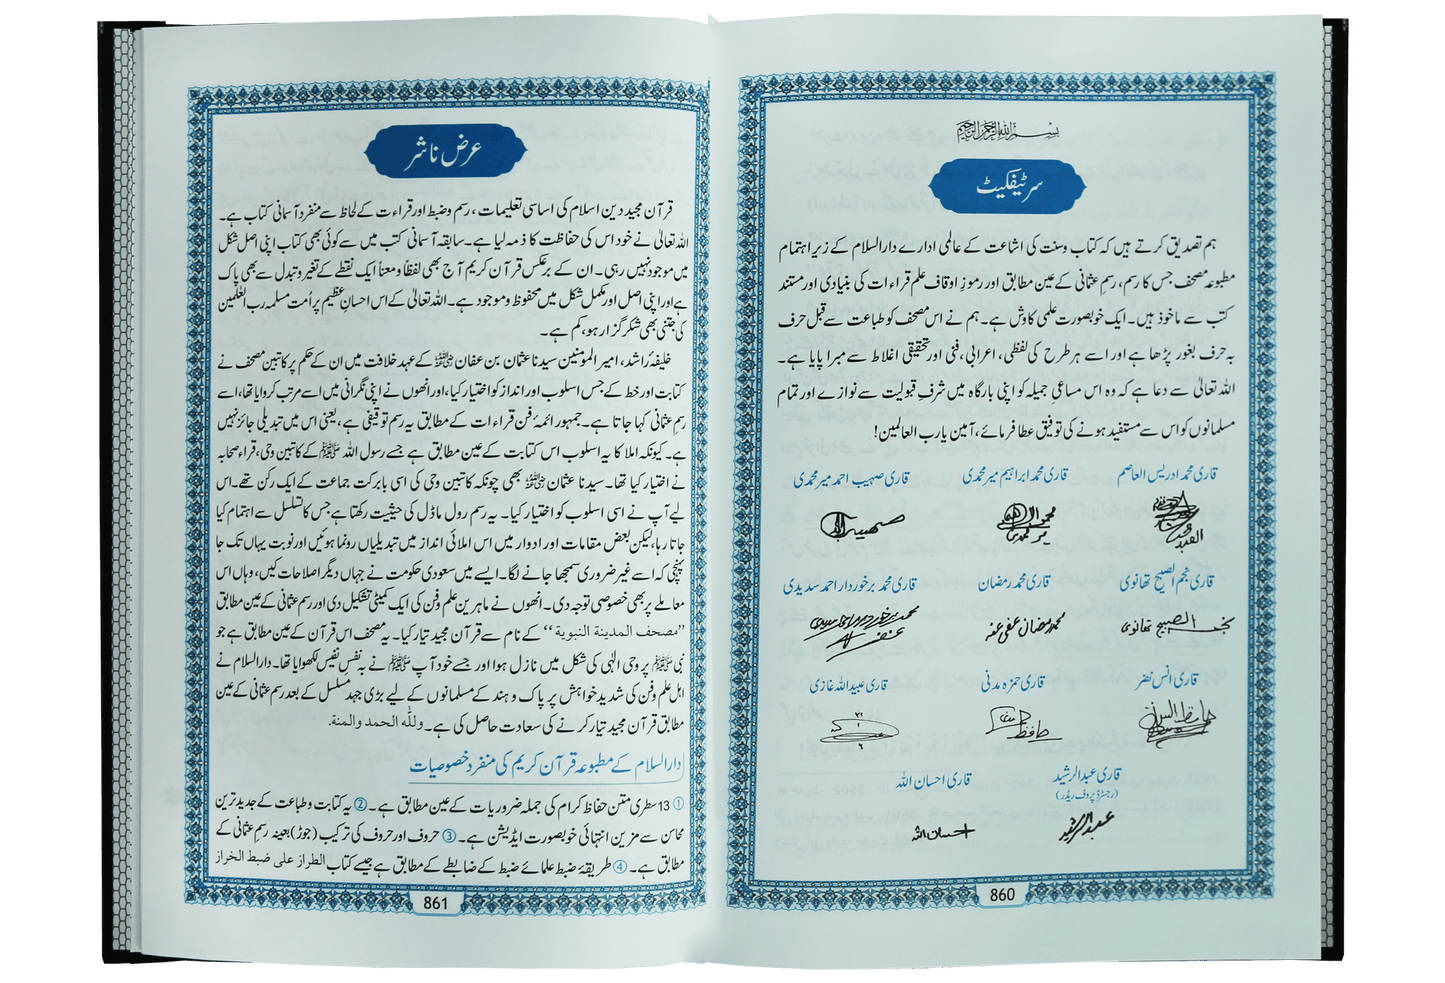 بسم الله الرحمن الرحيم
سرٹیفکیٹ
ہم تصدیق کرتے ہیں کہ کتاب وسنت کی اشاعت کے عالمی ادارے دارالسلام کے زیر اہتمام
مطبوعہ مصحف جس کا رسم، رسم عثمانی کے عین مطابق اور رموزِ اوقاف علم قراءات کی بنیادی اور مستند
کتب سے ماخوذ ہیں۔ ایک خوبصورت علمی کاوش ہے۔ ہم نے اس مصحف کو طباعت سے قبل حرف
بہ حرف بغور پڑھا ہے اور اسے ہر طرح کی لفظی، اعرابی، فنی اور تحقیقی اغلاط سے مبرا پایا ہے۔
اللہ تعالیٰ سے دعا ہے کہ وہ اس مساعی جمیلہ کو اپنی بارگاہ میں شرفِ قبولیت سے نوازے اور تمام
مسلمانوں کو اس سے مستفید ہونے کی توفیق عطا فرمائے، آمین یارب العالمین!
قاری محمد ادریس العاصم قاری محمد ابراہیم میر محمدی قاری صہیب احمد میر محمدی
قاری نجم الصبیح تھانوی قاری محمد رمضان قاری محمد برخوردار احمد سدیدی
نجم الصبیح تھانوی محمد رمضان عفی عنہ
قاری انس نضر قاری حمزہ مدنی قاری عبیداللہ غازی
قاری عبدالرشید قاری احسان اللہ
(رجسٹرڈ پروف ریڈر)
عبدالرشید احسان اللہ
860
عرض ناشر
قرآن مجید دین اسلام کی اساسی تعلیمات، رسم وضبط اور قراءت کے لحاظ سے منفرد آسمانی کتاب ہے۔
اللہ تعالیٰ نے خود اس کی حفاظت کا ذمہ لیا ہے۔ سابقہ آسمانی کتب میں سے کوئی بھی کتاب اپنی اصل شکل
میں موجود نہیں رہی۔ ان کے برعکس قرآن کریم آج بھی لفظاً ومعناً ایک نقطے کے تغیر وتبدل سے بھی پاک
ہے اور اپنی اصل اور مکمل شکل میں محفوظ و موجود ہے۔ اللہ تعالیٰ کے اس احسانِ عظیم پر اُمت مسلمہ رب العٰلمین
کی جتنی بھی شکر گزار ہو، کم ہے۔
خلیفۂ راشد، امیر المؤمنین سیدنا عثمان بن عفان رضی اللہ عنہ کے عہد خلافت میں ان کے حکم پر کاتبین مصحف نے
کتابت اور خط کے جس اسلوب اور انداز کو اختیار کیا، اور انھوں نے اپنی نگرانی میں اسے مرتب کروایا تھا، اسے
رسم عثمانی کہا جاتا ہے۔ جمہور ائمۂ فن قراءات کے مطابق یہ رسم توقیفی ہے، یعنی اس میں تبدیلی جائز نہیں
ہے۔ کیونکہ املا کا یہ اسلوب اس کتابت کے عین مطابق ہے جسے رسول اللہ ﷺ کے کاتبین وحی، قراء صحابہ
نے اختیار کیا تھا۔ سیدنا عثمان رضی اللہ عنہ بھی چونکہ کاتبین وحی کی اسی بابرکت جماعت کے ایک رکن تھے۔ اس
لیے آپ نے اسی اسلوب کو اختیار کیا۔ یہ رسم رول ماڈل کی حیثیت رکھتا ہے جس کا تسلسل سے اہتمام کیا
جاتا رہا، لیکن بعض مقامات اور ادوار میں اس املائی انداز میں تبدیلیاں رونما ہوئیں اور نوبت یہاں تک جا
پہنچی کہ اسے غیر ضروری سمجھا جانے لگا۔ ایسے میں سعودی حکومت نے جہاں دیگر اصلاحات کیں، وہاں اس
معاملے پر بھی خصوصی توجہ دی۔ انھوں نے ماہرین علم وفن کی ایک کمیٹی تشکیل دی اور رسم عثمانی کے عین مطابق
”مصحف المدینة النبویة“ کے نام سے قرآن مجید تیار کیا۔ یہ مصحف اس قرآن کے عین مطابق ہے جو
نبی ﷺ پر وحی الٰہی کی شکل میں نازل ہوا اور جسے خود آپ ﷺ نے بہ نفسِ نفیس لکھوایا تھا۔ دارالسلام نے
اہل علم وفن کی شدید خواہش پر پاک و ہند کے مسلمانوں کے لیے بڑی جہد مسلسل کے بعد رسم عثمانی کے عین
مطابق قرآن مجید تیار کرنے کی سعادت حاصل کی ہے۔ وللّٰه الحمد والمنة.
دارالسلام کے مطبوعہ قرآن کریم کی منفرد خصوصیات
① 13 سطری متن حفاظ کرام کی جملہ ضروریات کے عین مطابق ہے۔ ② یہ کتابت و طباعت کے جدید ترین
محاسن سے مزین انتہائی خوبصورت ایڈیشن ہے۔ ③ حروف اور حروف کی ترکیب (جوڑ) بعینہٖ رسم عثمانی کے
مطابق ہے۔ ④ طریقۂ ضبط علمائے ضبط کے ضابطے کے مطابق ہے جیسے کتاب الطراز على ضبط الخراز
861